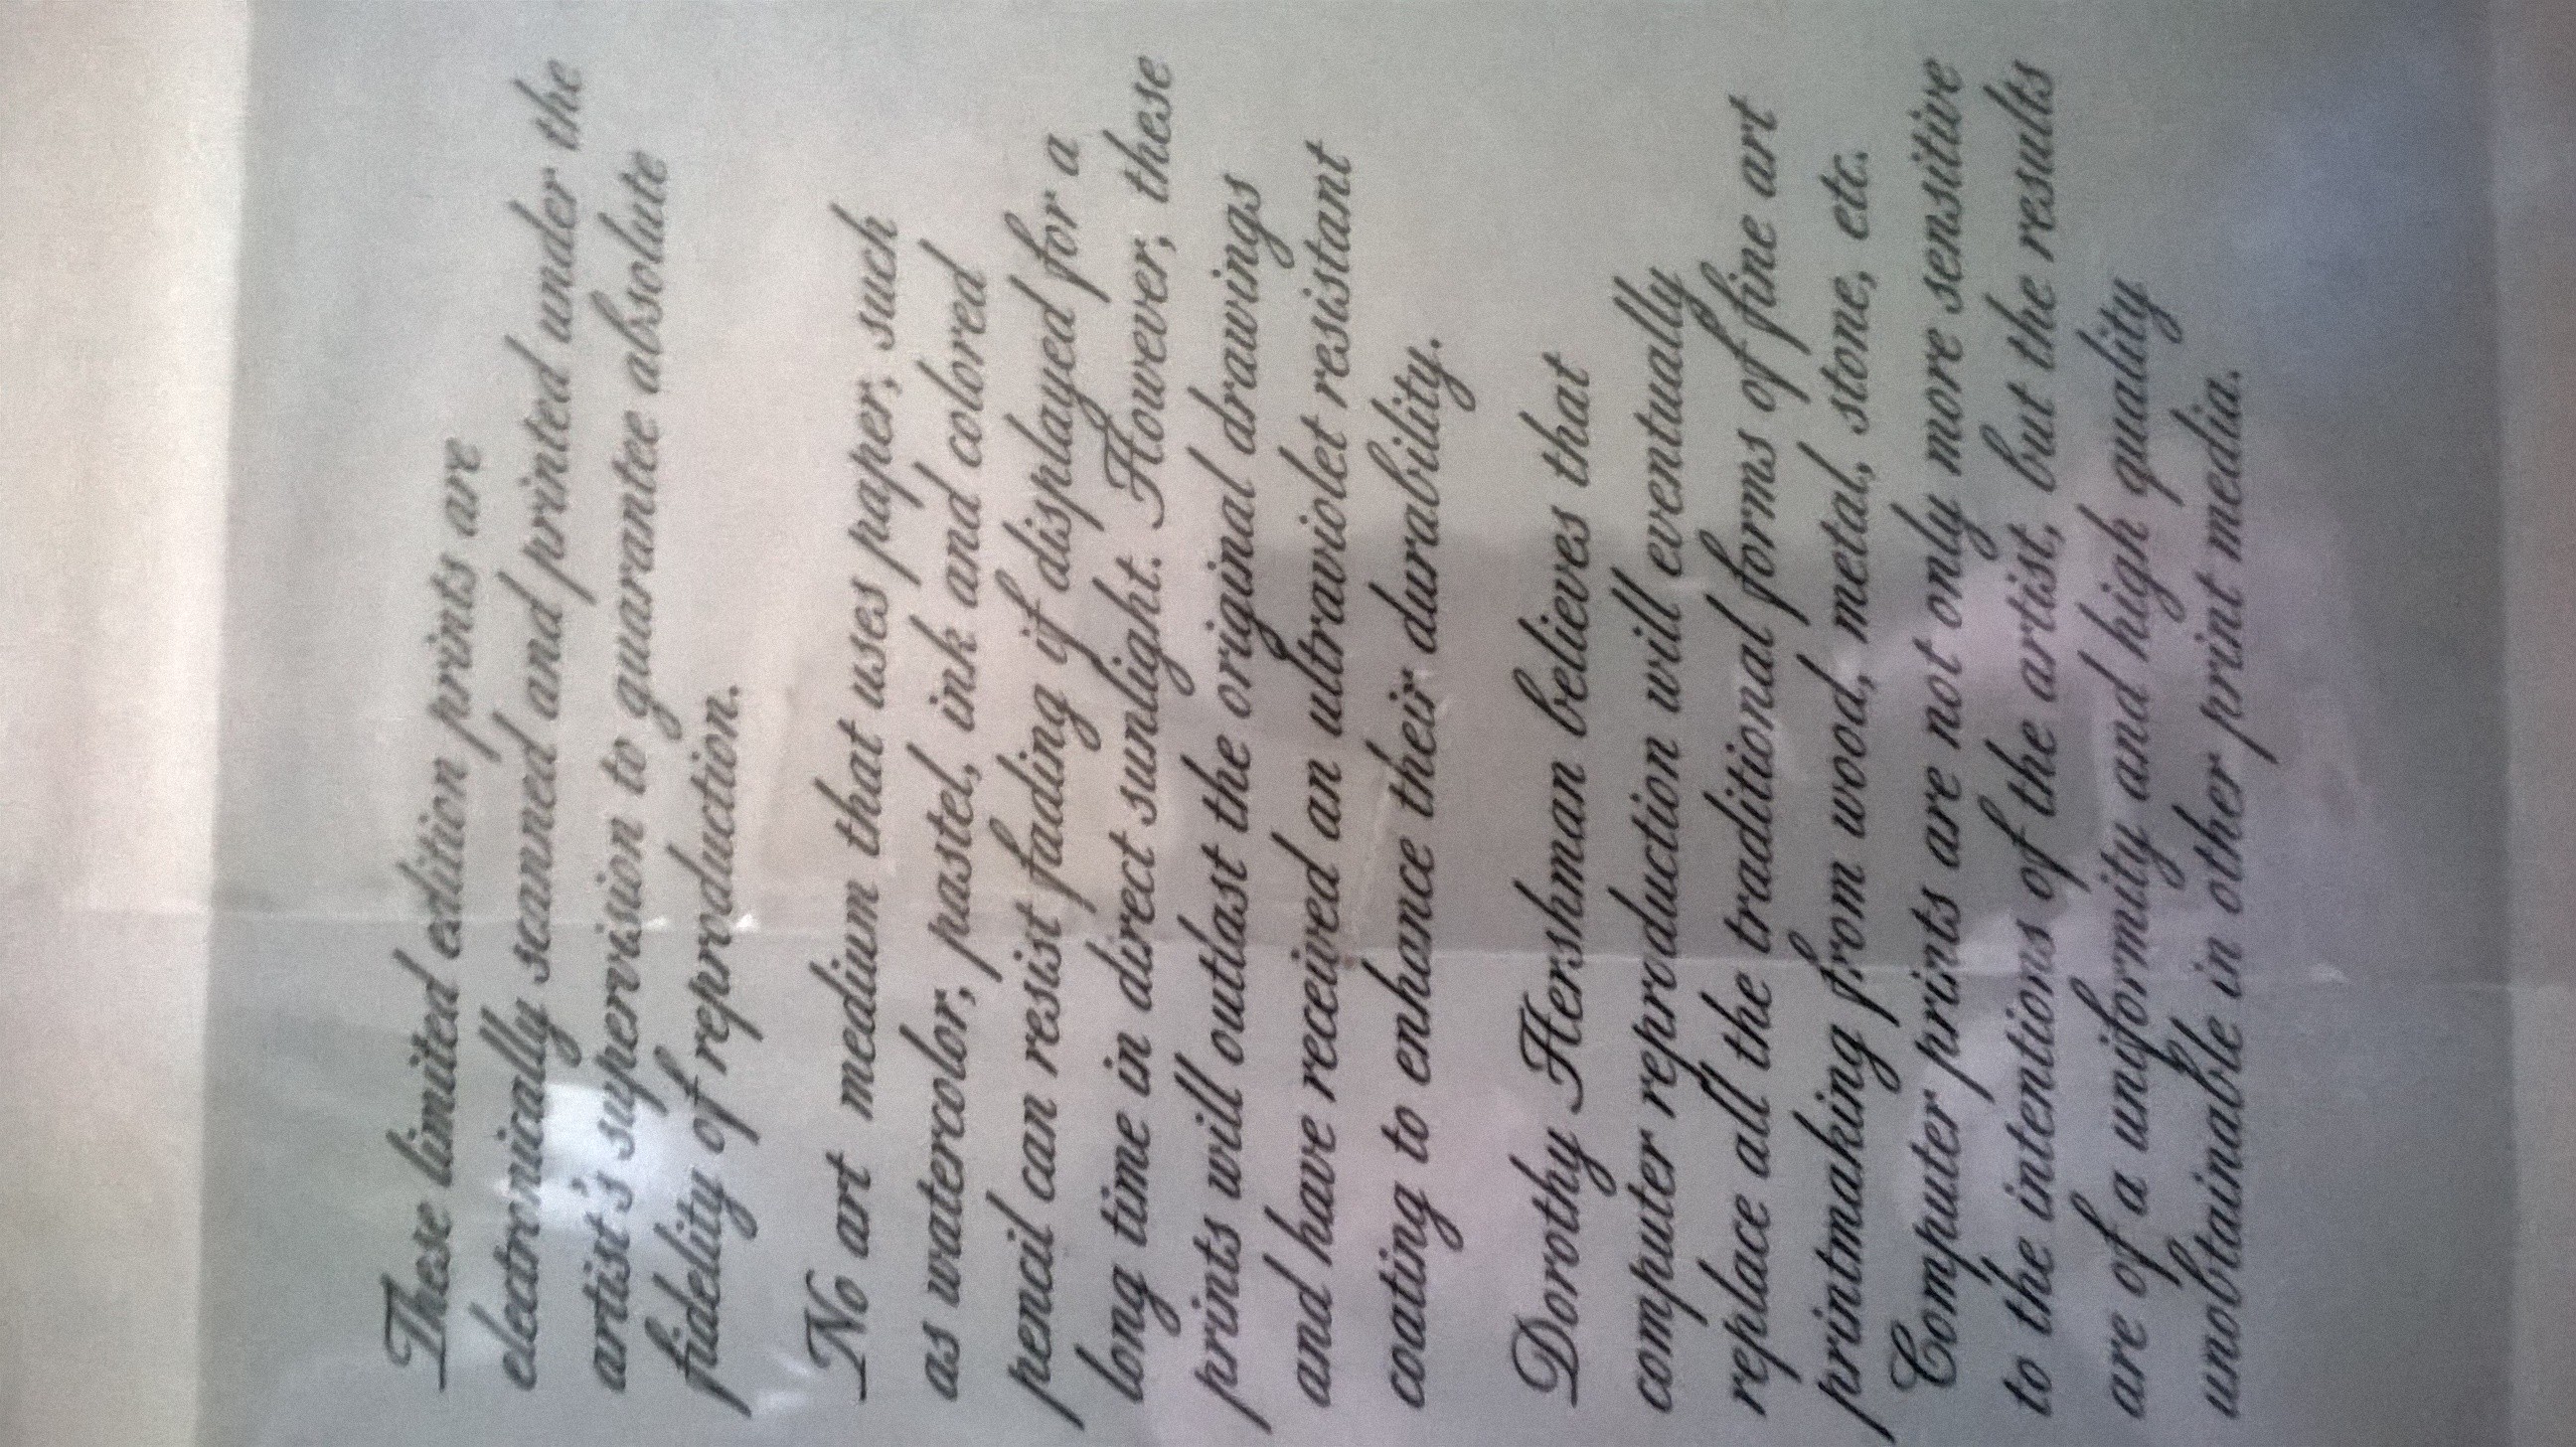 These limited edition prints are
electronically scanned and printed under the
artist's supervision to guarantee absolute
fidelity of reproduction.
No art medium that uses paper, such
as watercolor, pastel, ink and colored
pencil can resist fading if displayed for a
long time in direct sunlight. However, these
prints will outlast the original drawings
and have received an ultraviolet resistant
coating to enhance their durability.
Dorothy Hershman believes that
computer reproduction will eventually
replace all the traditional forms of fine art
printmaking from wood, metal, stone, etc.
Computer prints are not only more sensitive
to the intentions of the artist, but the results
are of a uniformity and high quality
unobtainable in other print media.